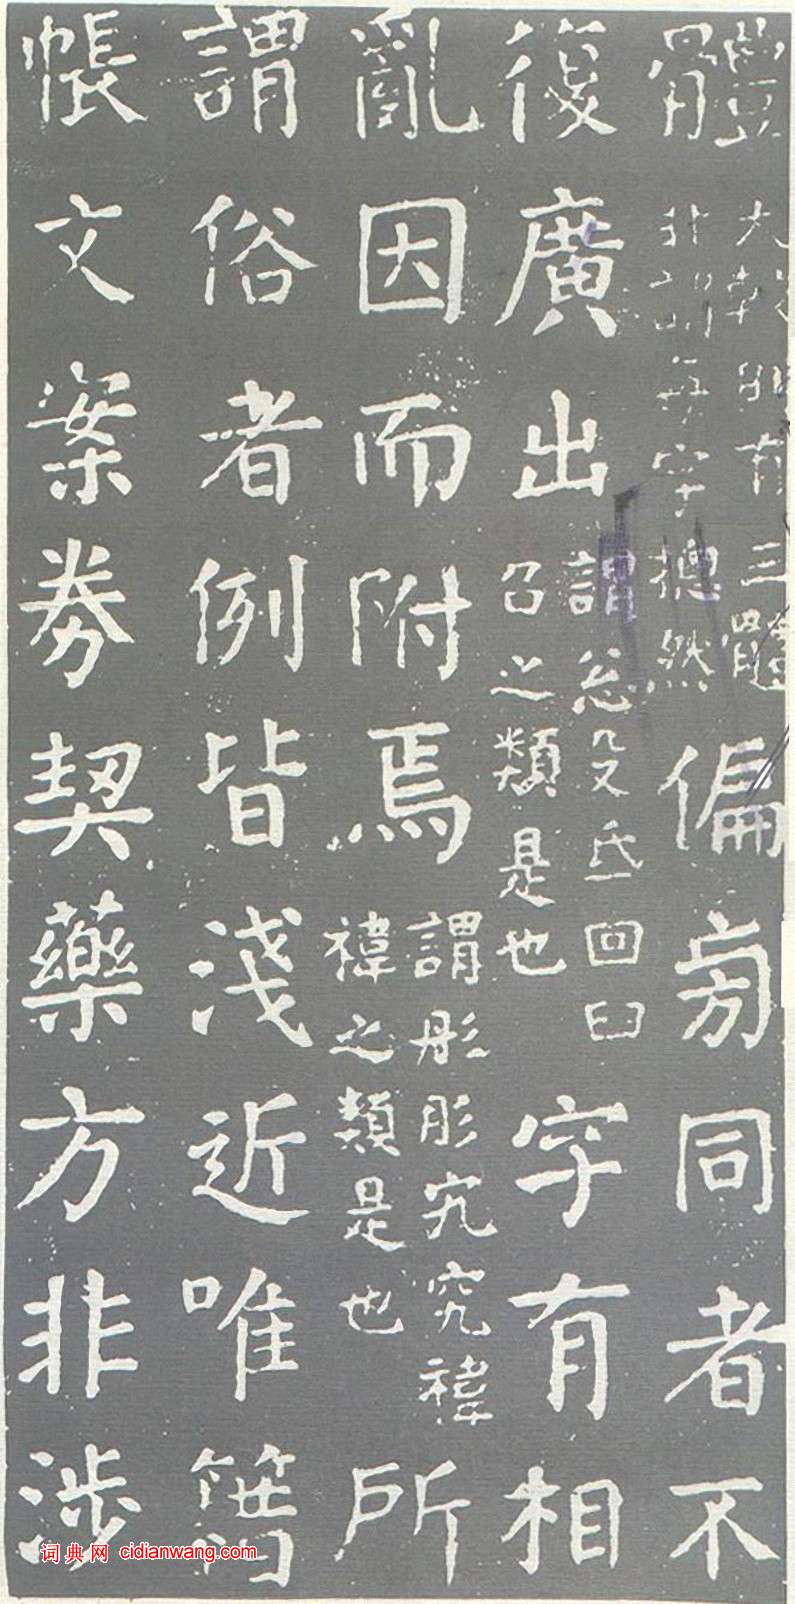 體
大較則有三體
非謂每字摠然
偏旁同者不
復廣出
謂忩殳氐回臼
召之類是也
字有相
亂因而附焉
謂彤肜宄究禕
褘之類是也
所
謂俗者例皆淺近唯籍
帳文案券契藥方非涉
词典网 cidianwang.com